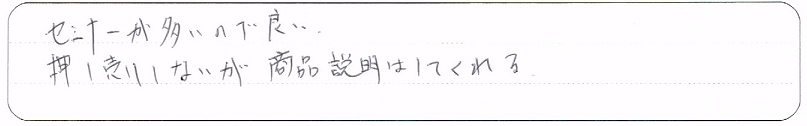 セミナーが多いので良い.
押し売りしないが 商品説明はしてくれる